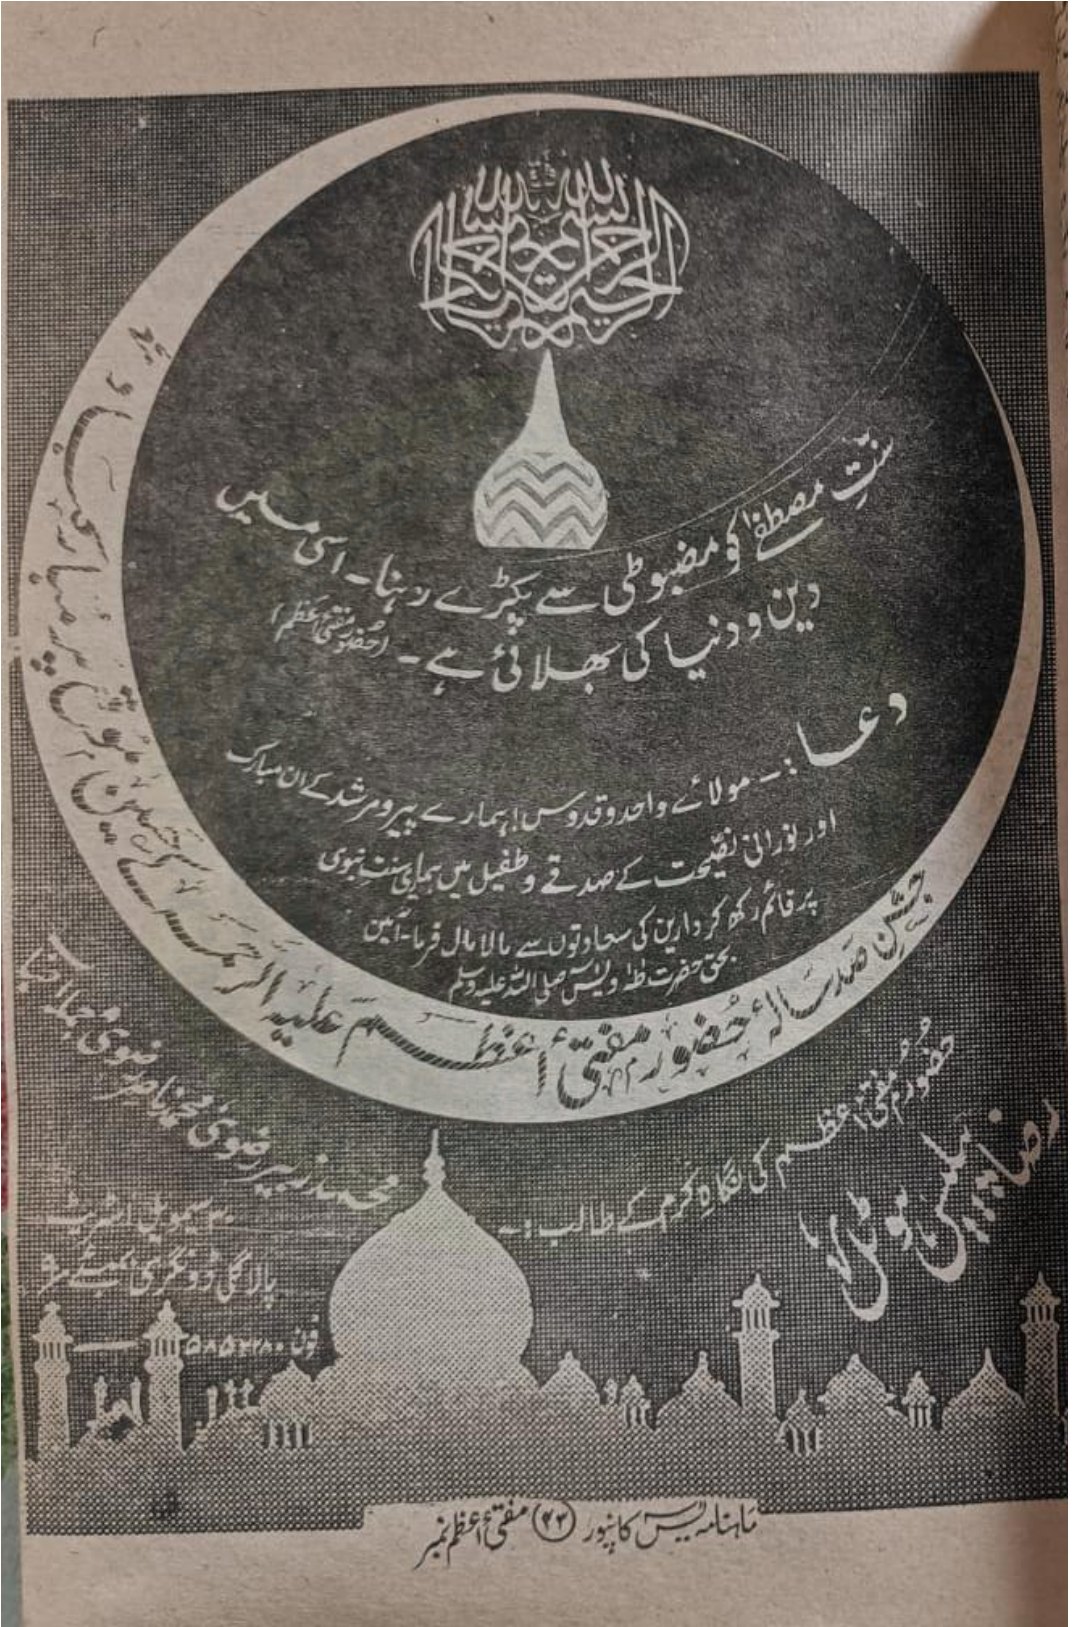 بسم الله الرحمن الرحيم
سنتِ مصطفےٰ کو مضبوطی سے پکڑے رہنا۔ اسی میں
دین و دنیا کی بھلائی ہے۔ (حضور مفتیٔ اعظم)
دعا :۔ مولائے واحد و قدوس! ہمارے پیر و مرشد کے ان مبارک
اور نورانی نصیحت کے صدقے و طفیل میں ہماری سنتِ نبوی
پر قائم رکھ کر دارین کی سعادتوں سے مالا مال فرما۔ آمین
بحق حضرت طٰہٰ و یٰسٓ صلی اللہ علیہ وسلم
جشنِ صد سالۂ حضور مفتیٔ اعظم علیہ الرحمہ کے حسین موقع پر مبارکباد
حضور مفتیٔ اعظم کی نگاہِ کرم کے طالب :۔
رضا ہوٹل
محمد زبیر رضوی محمد ناصر رضوی
۳۰ سیمویل اسٹریٹ
پالا گلی ڈونگری بمبئی ۹
فون ۵۸۵۲۲۸۰
ماہنامہ یٰسٓ کانپور (۴۴) مفتیٔ اعظم نمبر